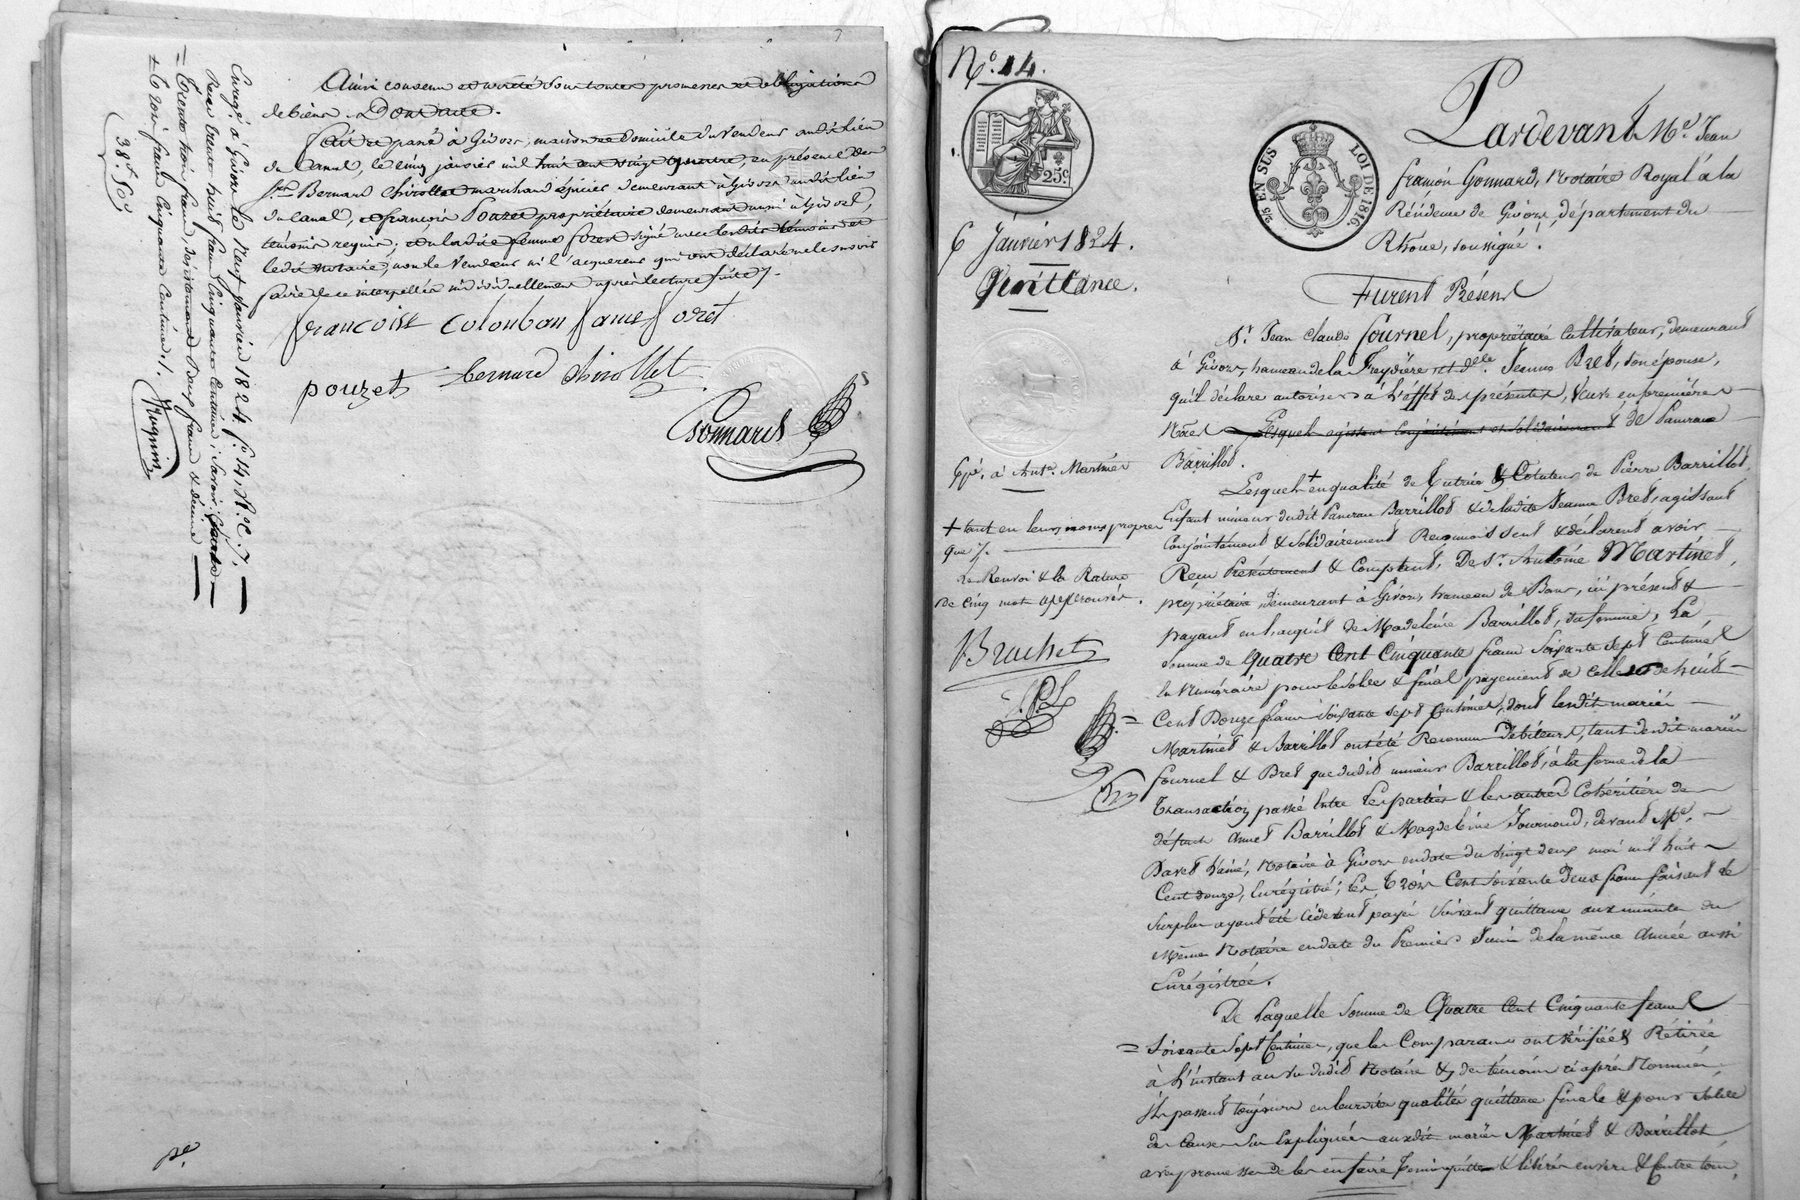 7
Ainsi convenu et arrêté sous toutes promesses et obligations
de biens. Dont acte.
Fait et passé à Givors, maison et domicile du vendeur audit lieu
du Canal, le cinq janvier mil huit cent vingt quatre, en présence des
Srs. Bernard Chirollet marchand épicier demeurant à Givors audit lieu
du Canal, et françois Pouzet propriétaire demeurant aussi à Givors,
témoins requis; et a ladite femme foret signé avec lesdits témoins et
ledit notaire, non le vendeur ni l'acquereur qui ont déclaré ne le savoir
faire de ce interpellés individuellement après lecture faite.
francoise Colonban fame foret
pouzet bernard Chirollet
Gonnard
Enregé. à Givors le neuf Janvier 1824 fo. 14, Ro. C. 7.
Reçu trente huit francs cinquante centimes, savoir:
= trente trois francs, dixième trois francs
= & trois francs cinquante centimes.
38f. 50c.
Ruquin
No. 14.
25c.
25 EN SUS
LOI DE 1816
6 Janvier 1824.
Quittance.
Pardevant Me. Jean
framón Gonnard, Notaire Royal à la
Résidence de Givors, département du
Rhône, soussigné.
Furent Présens
Sr. Jean Claude Fournel, propriétaire Cultivateur, demeurant
à Givors, hameau de la Freydière et dlle. Jeanne Bret, son épouse,
qu'il déclare autoriser à l'effet des présentes, veuve en premières
Nôces Lesquels agissant conjointement et solidairement de Pancrace
Barrillot.
Expé. à Ante. Martinet
Lesquels + en qualité de Tutrice & Cotuteur de Pierre Barrillot,
Enfant mineur dudit Pancrace Barrillot & de ladite Jeanne Bret, agissant
+ tant en leurs noms propres
que
Conjointement & solidairement Reconnoissent & déclarent avoir
Reçu Présentement & Comptant, De Sr. Antoine Martinet,
Le Renvoi & la Rature
de cinq mots approuvés.
propriétaire, demeurant à Givors, hameau de Bans, ici présent &
payant en l'acquit de Magdeleine Barrillot, sa femme, La
Somme de Quatre Cent Cinquante francs Soixante Sept Centimes
Bruchet
En Numéraire pour le solde & final payement de celle de huit
Cent Douze francs Soixante sept Centimes, dont lesdits mariés
Martinet & Barrillot ont été Reconnus Débiteurs, tant desdits mariés
Fournel & Bret que dudit mineur Barrillot, à la forme de la
Transaction passée Entre les parties & les autres Cohéritiers de
défunts Annet Barrillot & Magdeleine Journoud, devant Me.
Davet l'ainé, Notaire à Givors en date du vingt deux mai mil huit
Cent douze, Enrégistré; les Trois Cent soixante deux francs faisant le
Surplus ayant été ci devant payés suivant quittance aux minutes du
même Notaire en date du Premier Juin de la même Année aussi
Enrégistrée.
De Laquelle Somme de Quatre Cent Cinquante francs
= Soixante Sept Centimes, que les Comparans ont vérifiée & Retirée
à l'instant au vu dudit Notaire & des témoins ci après Nommés,
ils passent toujours en leursdites qualités quittance finale & pour solde
des causes sus Expliquées auxdits mariés Martinet & Barrillot,
avec promesse de les en faire Tenir quittes & libérés envers & contre tous,